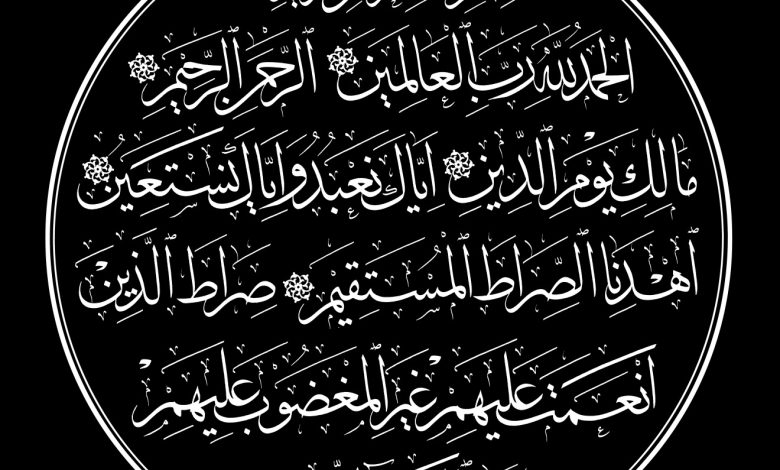 الحمد لله رب العالمين ۞ الرحمن الرحيم ۞
مالك يوم الدين ۞ اياك نعبد واياك نستعين ۞
اهدنا الصراط المستقيم ۞ صراط الذين
انعمت عليهم غير المغضوب عليهم